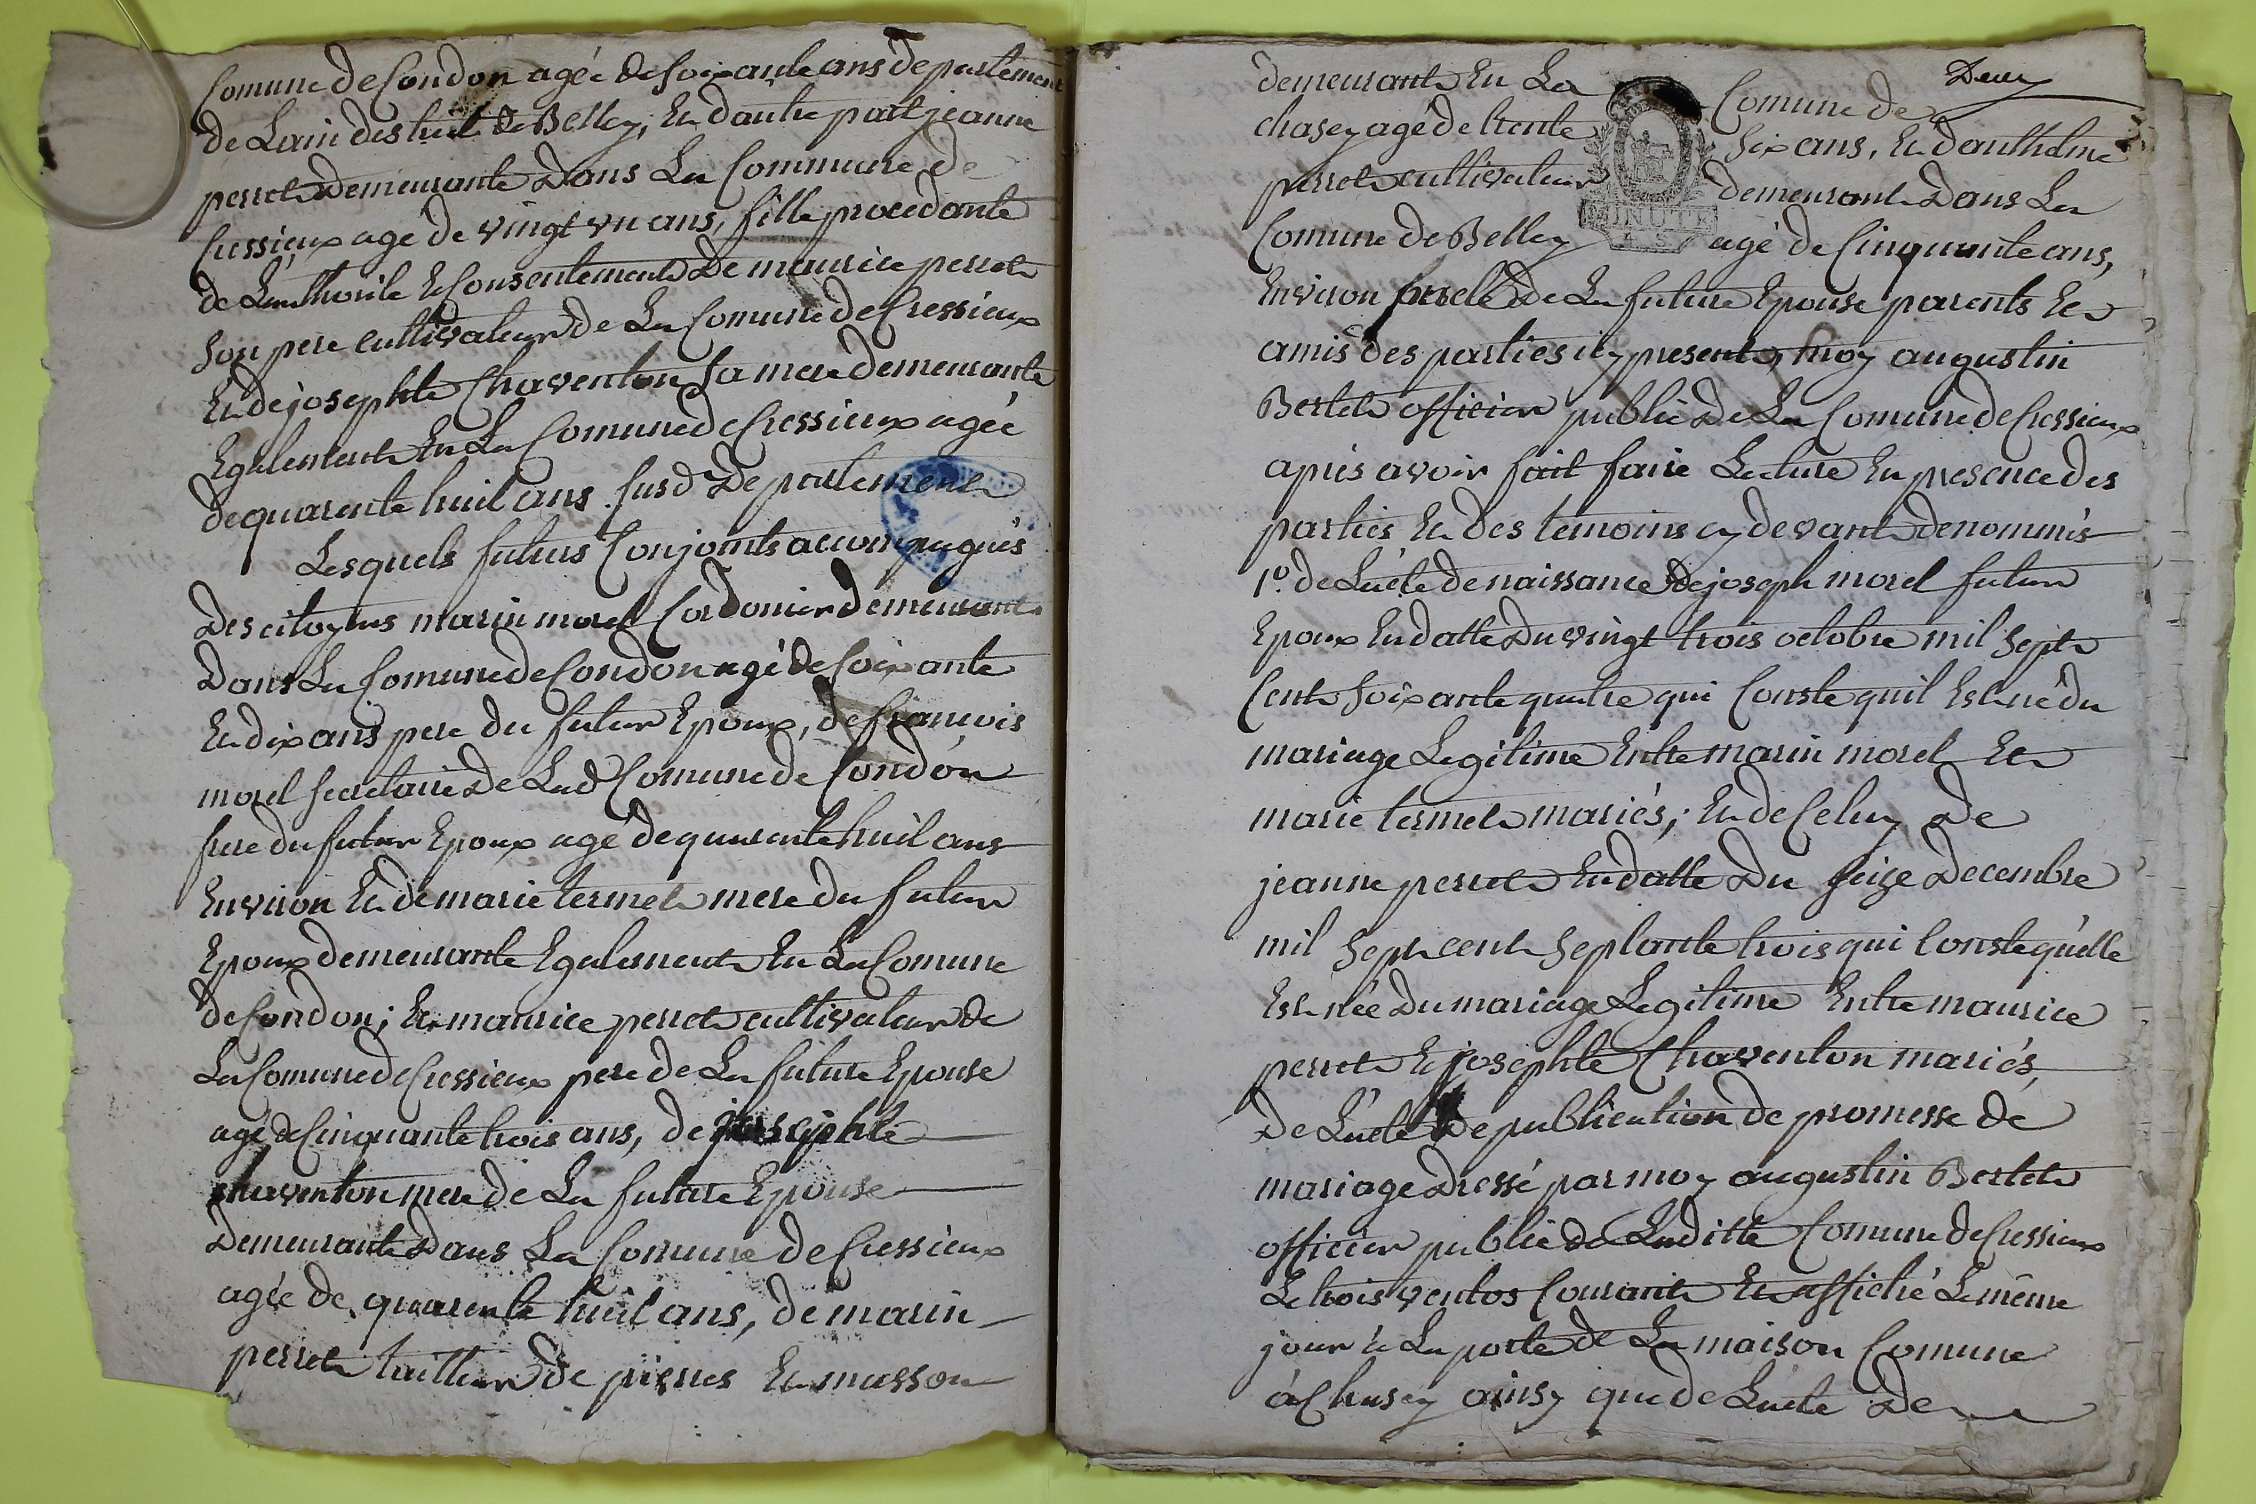 Comune de Condon agée de soixante ans departement
de Lain destrict de Belley, Et dautre part jeanne
perret demeurante dans La Commune de
Cressieux agé de vingt vn ans, fille procedante
de Lauthorité Et Consentement de maurice perret
son pere cultivateur de La Comune de Cressieux
Et de josephte Chaventon sa mere demeurante
Egalement En La Comune de Cressieux agée
de quarente huit ans susd. departement
Lesquels futurs Conjoints accompagnés
des citoyens marin morel Cordonier demeurant
dans La Comune de Condon agé de soixante
Et dix ans pere du futur Epoux, de françois
morel secretaire de Lad Comune de Condon
frere du futur Epoux agé de quarente huit ans
Environ Et de marie termet mere du futur
Epoux demeurante Egalement En La Comune
de Condon; Et maurice perret cultivateur de
La Comune de Cressieux pere de La future Epouse
agé de Cinquante trois ans, de josephte
chaventon mere de La future Epouse
Demeurante dans La Comune de Cressieux
agée de quarente huit ans, de marin
perret tailleur de pierres Et masson
Deux
demeurant En La Comune de
chasey agé de trente six ans, Et danthelme
perret cultivateur demeurant dans La
MINUTE
Comune de Belley agé de Cinquante ans,
Environ de La future Epouse parents Et
amis des parties icy present, moy augustin
Bertet officier public de La Comune de Cressieux
après avoir fait faire Lecture En presence des
parties Et des temoins cy devant denommés
1º. de Lacte de naissance de joseph morel futur
Epoux En datte du vingt trois octobre mil sept
Cent soixante quatre qui Conste quil Est né du
mariage Legitime Entre marin morel Et
marie termet mariés; Et de Celuy de
jeanne perret En datte du seize decembre
mil sept cent septante trois qui Conste quelle
Est née du mariage Legitime Entre maurice
perret Et josephte Chaventon mariés,
De Lacte de publication de promesse de
mariage dressé par moy augustin Bertet
officier public de Laditte Comune de Cressieux
Le trois ventos Courant Et affiché Le même
jour à La porte de La maison Comune
à Chasey ainsy que de Lacte de